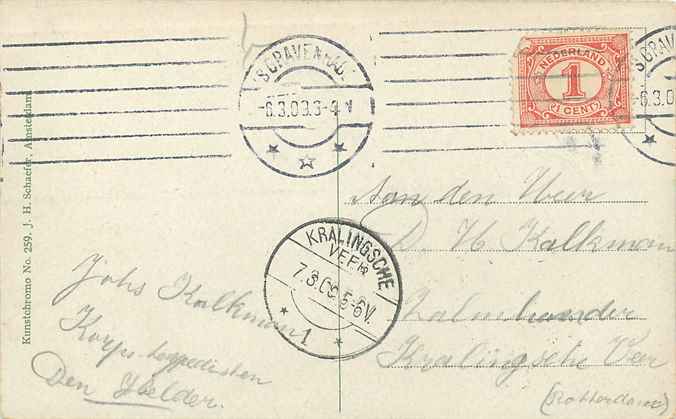 'S GRAVENHAGE
-6.3.09.3-4 V
NEDERLAND
1
1 CENT
'S GRAV
-6.3.0
Kunstchromo No. 259. J. H. Schaefer, Amsterdam
Aan den Heer
D. H Kalkman
Zalmhandler
Kralingsche Veer
(Rotterdam)
KRALINGSCHE
VEER
7.3.09.5-6V.
1
Johs Kalkman
Korps
Den Helder.